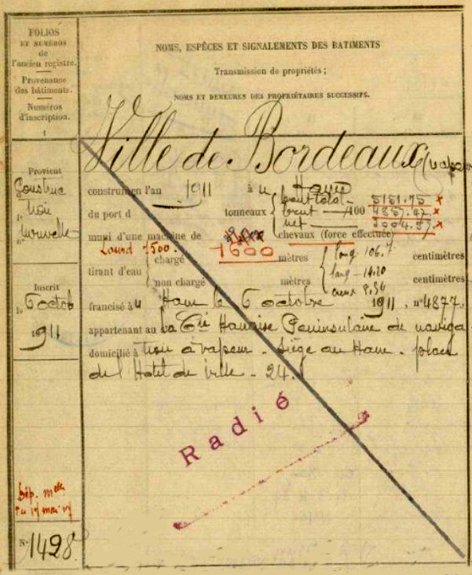 FOLIOS
ET NUMÉROS
de
l'ancien registre.
Provenance
des bâtiments.
Numéros
d'inscription.
1
NOMS, ESPÈCES ET SIGNALEMENTS DES BATIMENTS
Transmission de propriétés;
NOMS ET DEMEURES DES PROPRIÉTAIRES SUCCESSIFS.
Ville de Bordeaux (vapeur
Provient
Construc
tion
nouvelle
construit en l'an 1911 à u Havre
du port d tonneaux
brut total 5181.75 ×
brut 100 4887.47 ×
net 3004.57 ×
muni d'une machine de 1600 chevaux (force effective)
Lourd 7500.
tirant d'eau
chargé mètres centimètres
non chargé mètres centimètres
long 106.
larg 14.20
creux 8.36
Inscrit
le 6 octob
1911
francisé à u Havre le 6 octobre 1911. n° 4877.
appartenant au la Cie Havraise Péninsulaire de naviga
domicilié à tion à vapeur. Siège au Havre. place
de l'Hôtel de ville. 24.
Radié
Dép. mlle
du 17 mai 17
N° 1428